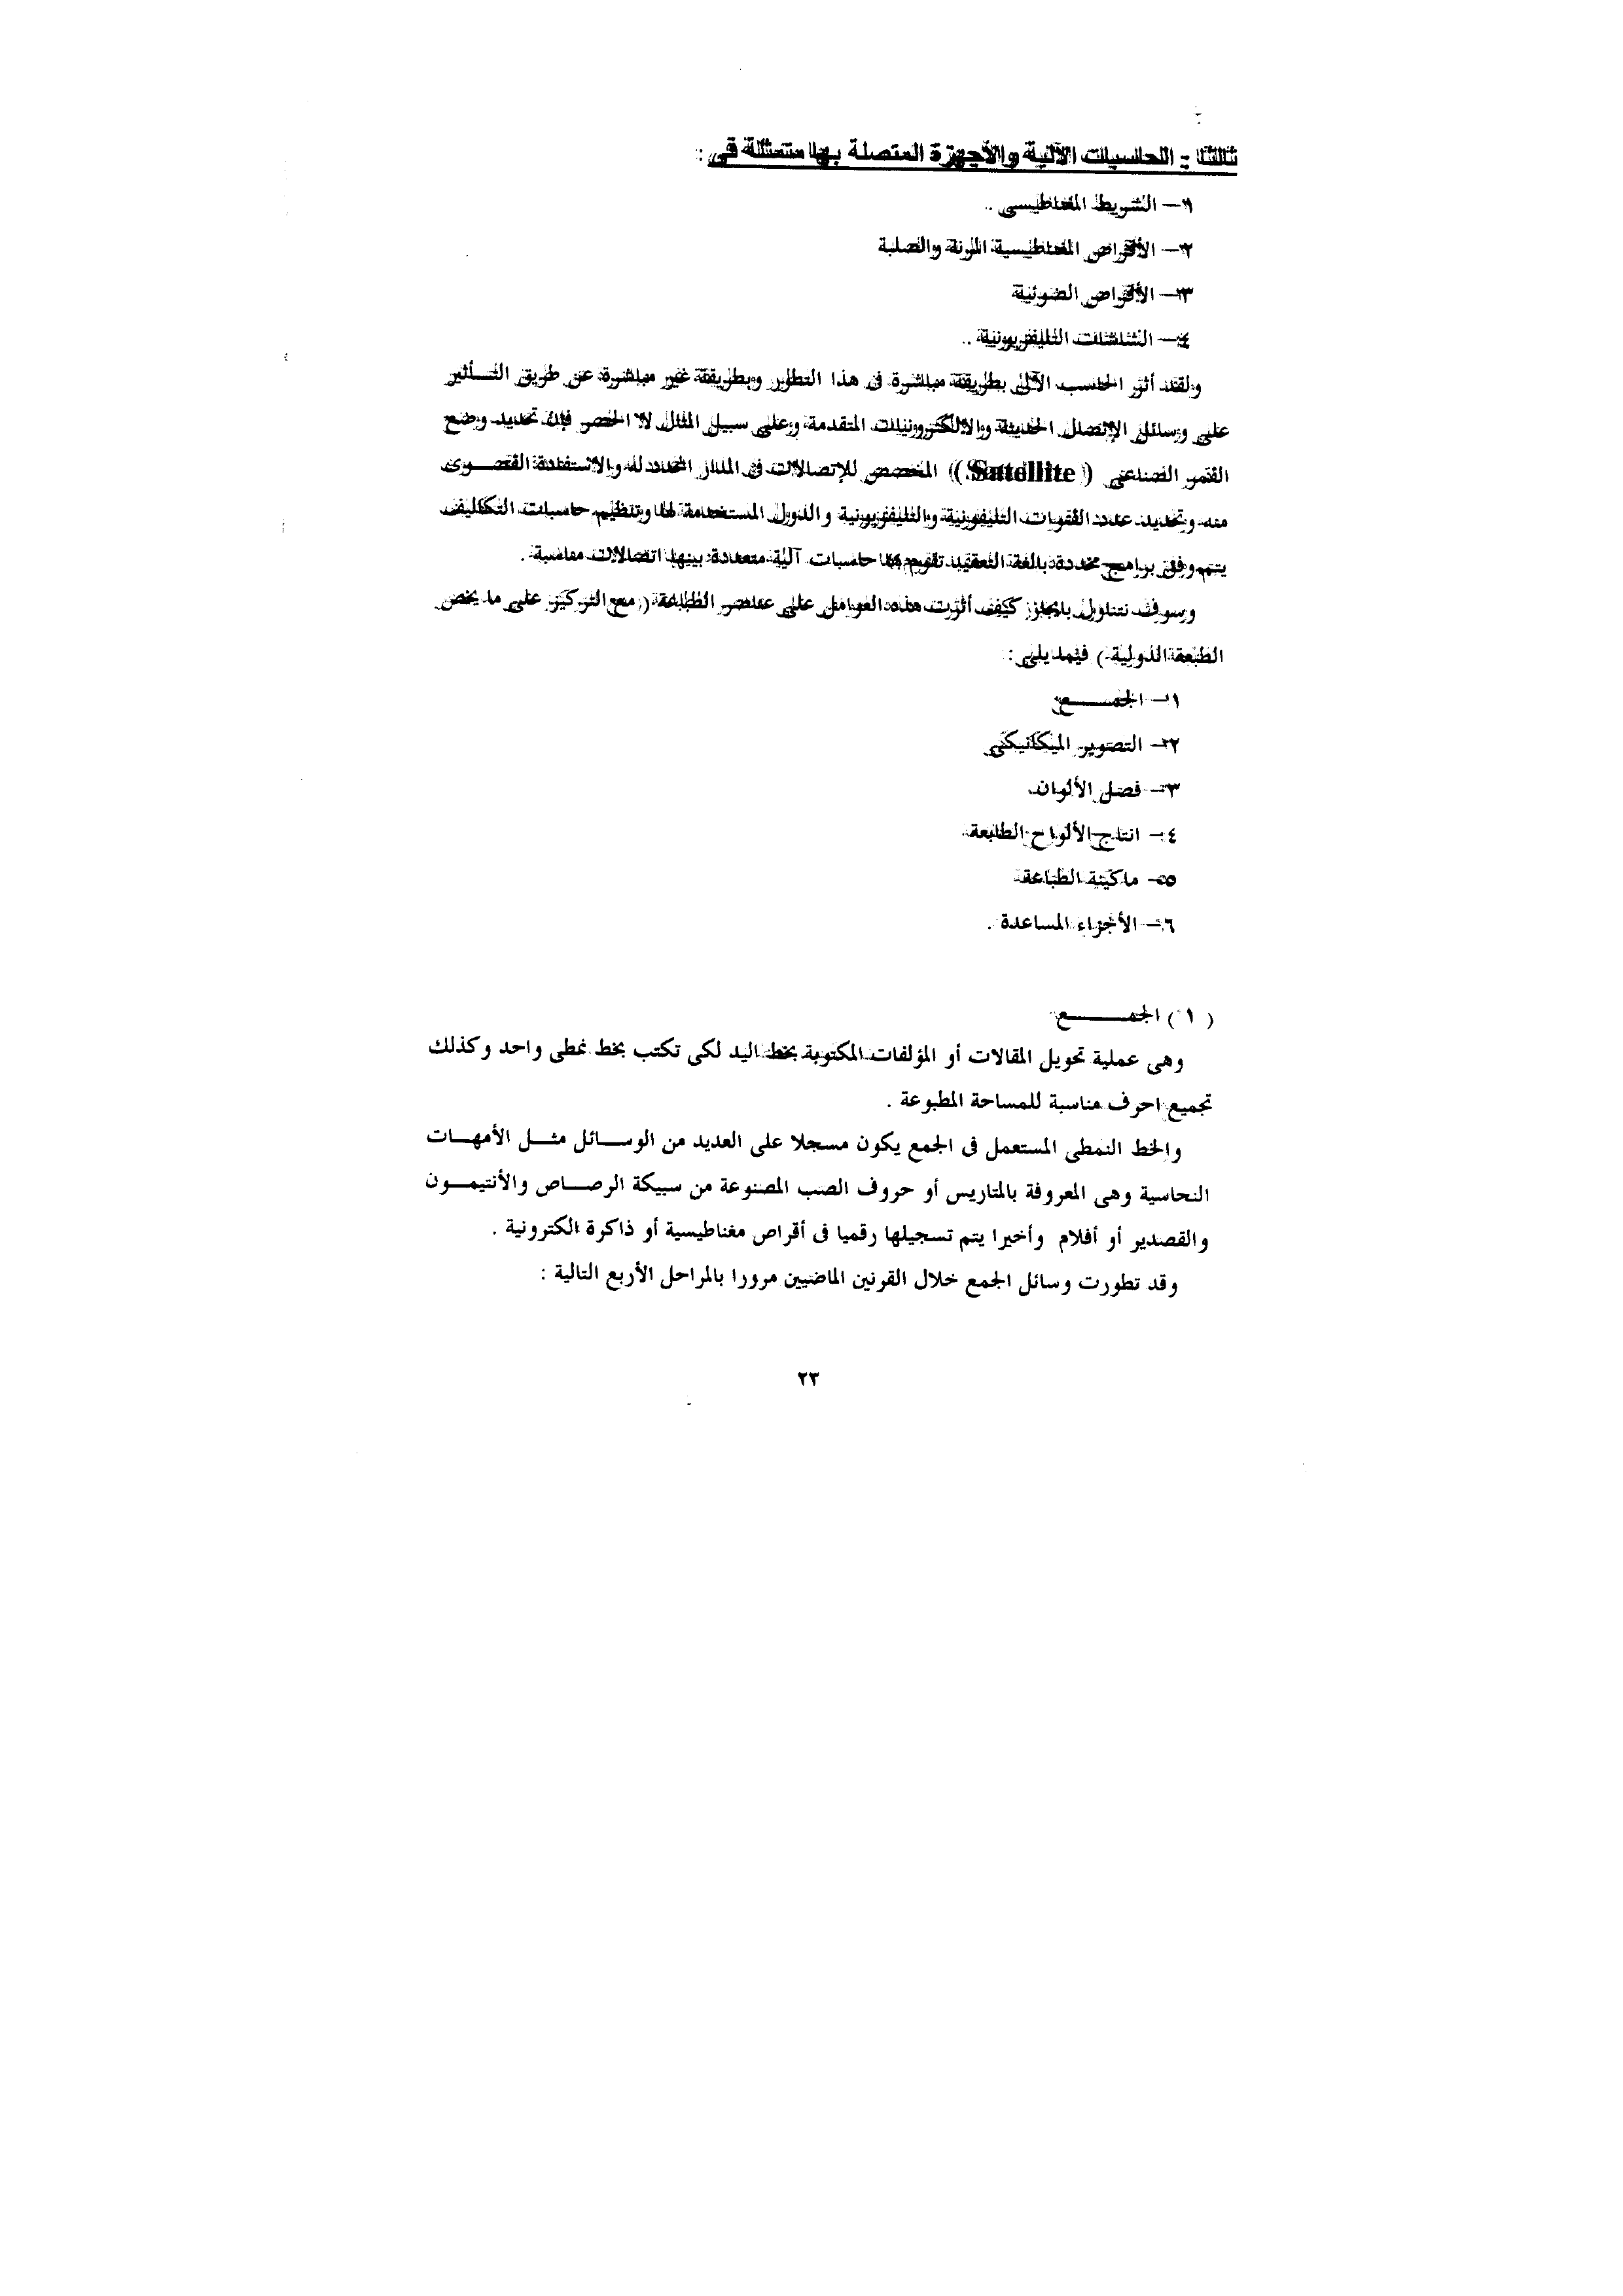 ثالثا - الحاسبات الآلية والأجهزة المتصلة بها متمثلة فى :
١- الشريط المغناطيسى .
٢- الأقراص المغناطيسية المرنة والصلبة
٣- الأقراص الضوئية
٤- الشاشات التليفزيونية .
ولقد أثر الحاسب الآلى بطريقة مباشرة فى هذا التطور وبطريقة غير مباشرة عن طريق التـأثير
على وسائل الإتصال الحديثة والالكترونيات المتقدمة وعلى سبيل المثال لا الحصر فإن تحديد وضع
القمر الصناعى ( Satellite ) المخصص للإتصالات فى المدار المحدد له والاستفادة القصـوى
منه وتحديد عدد القنوات التليفونية والتليفزيونية والدول المستخدمة لها وتنظيم حاسبات التكاليف
يتم وفق برامج محددة بالغة التعقيد تقوم بها حاسبات آلية متعددة بينها اتصالات
وسوف نتناول بايجاز كيف أثرت هذه العوامل على عناصر الطباعة ( مع التركيز على ما يخص
الطبعة الدولية ) فيما يلى :
١- الجمـــع
٢- التصوير الميكانيكى
٣- فصل الألوان
٤- انتاج الألواح الطابعة
٥- ماكينة الطباعة
٦- الأجزاء المساعدة .
( ١ ) الجمـــــع
وهى عملية تحويل المقالات أو المؤلفات المكتوبة بخط اليد لكى تكتب بخط نمطى واحد وكذلك
تجميع احرف مناسبة للمساحة المطبوعة .
والخط النمطى المستعمل فى الجمع يكون مسجلا على العديد من الوسـائل مثـل الأمهـات
النحاسية وهى المعروفة بالمتاريس أو حروف الصب المصنوعة من سبيكة الرصـاص والأنتيمـون
والقصدير أو أفلام وأخيرا يتم تسجيلها رقميا فى أقراص مغناطيسية أو ذاكرة الكترونية .
وقد تطورت وسائل الجمع خلال القرنين الماضيين مرورا بالمراحل الأربع التالية :
٢٣